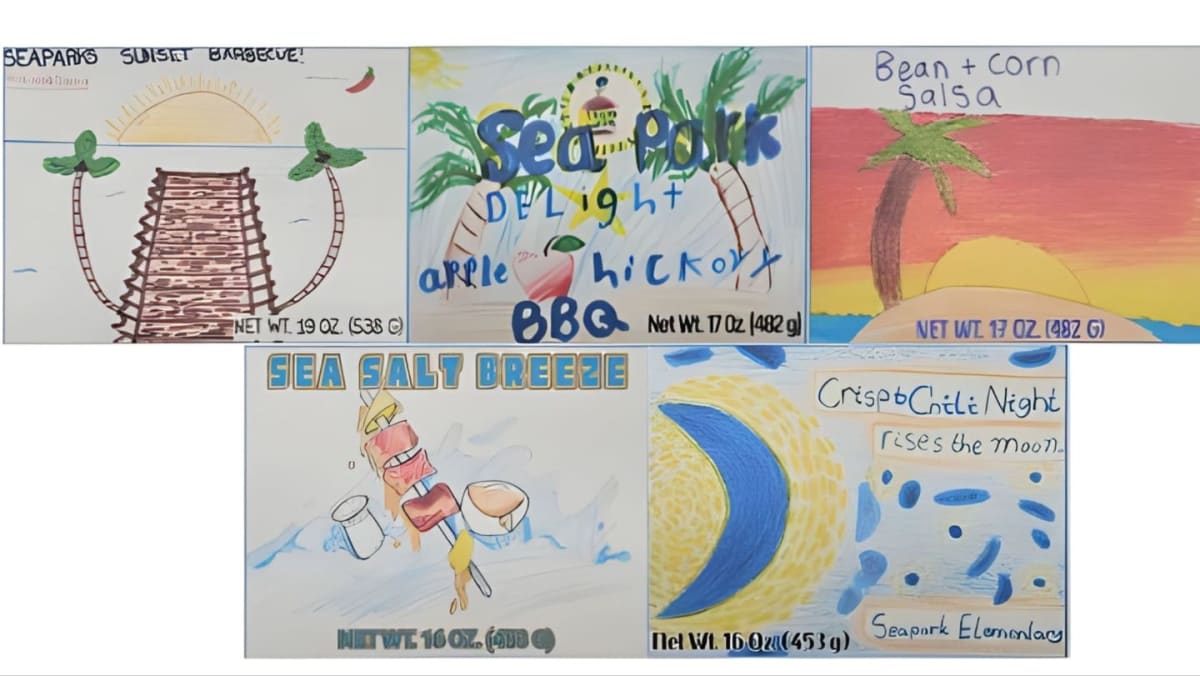 SEAPARKS SUNSET BARBECUE!
NET WT. 19 OZ. (538 G)
Sea Park
DELight
apple hickory
BBQ
Net Wt. 17 Oz (482 g)
Bean + Corn
Salsa
NET WT. 17 OZ. (482 G)
SEA SALT BREEZE
NET WT. 16 OZ.
Chili Night
rises the moon
Seapark Elementary
Net Wt. 16 Oz. (453 g)